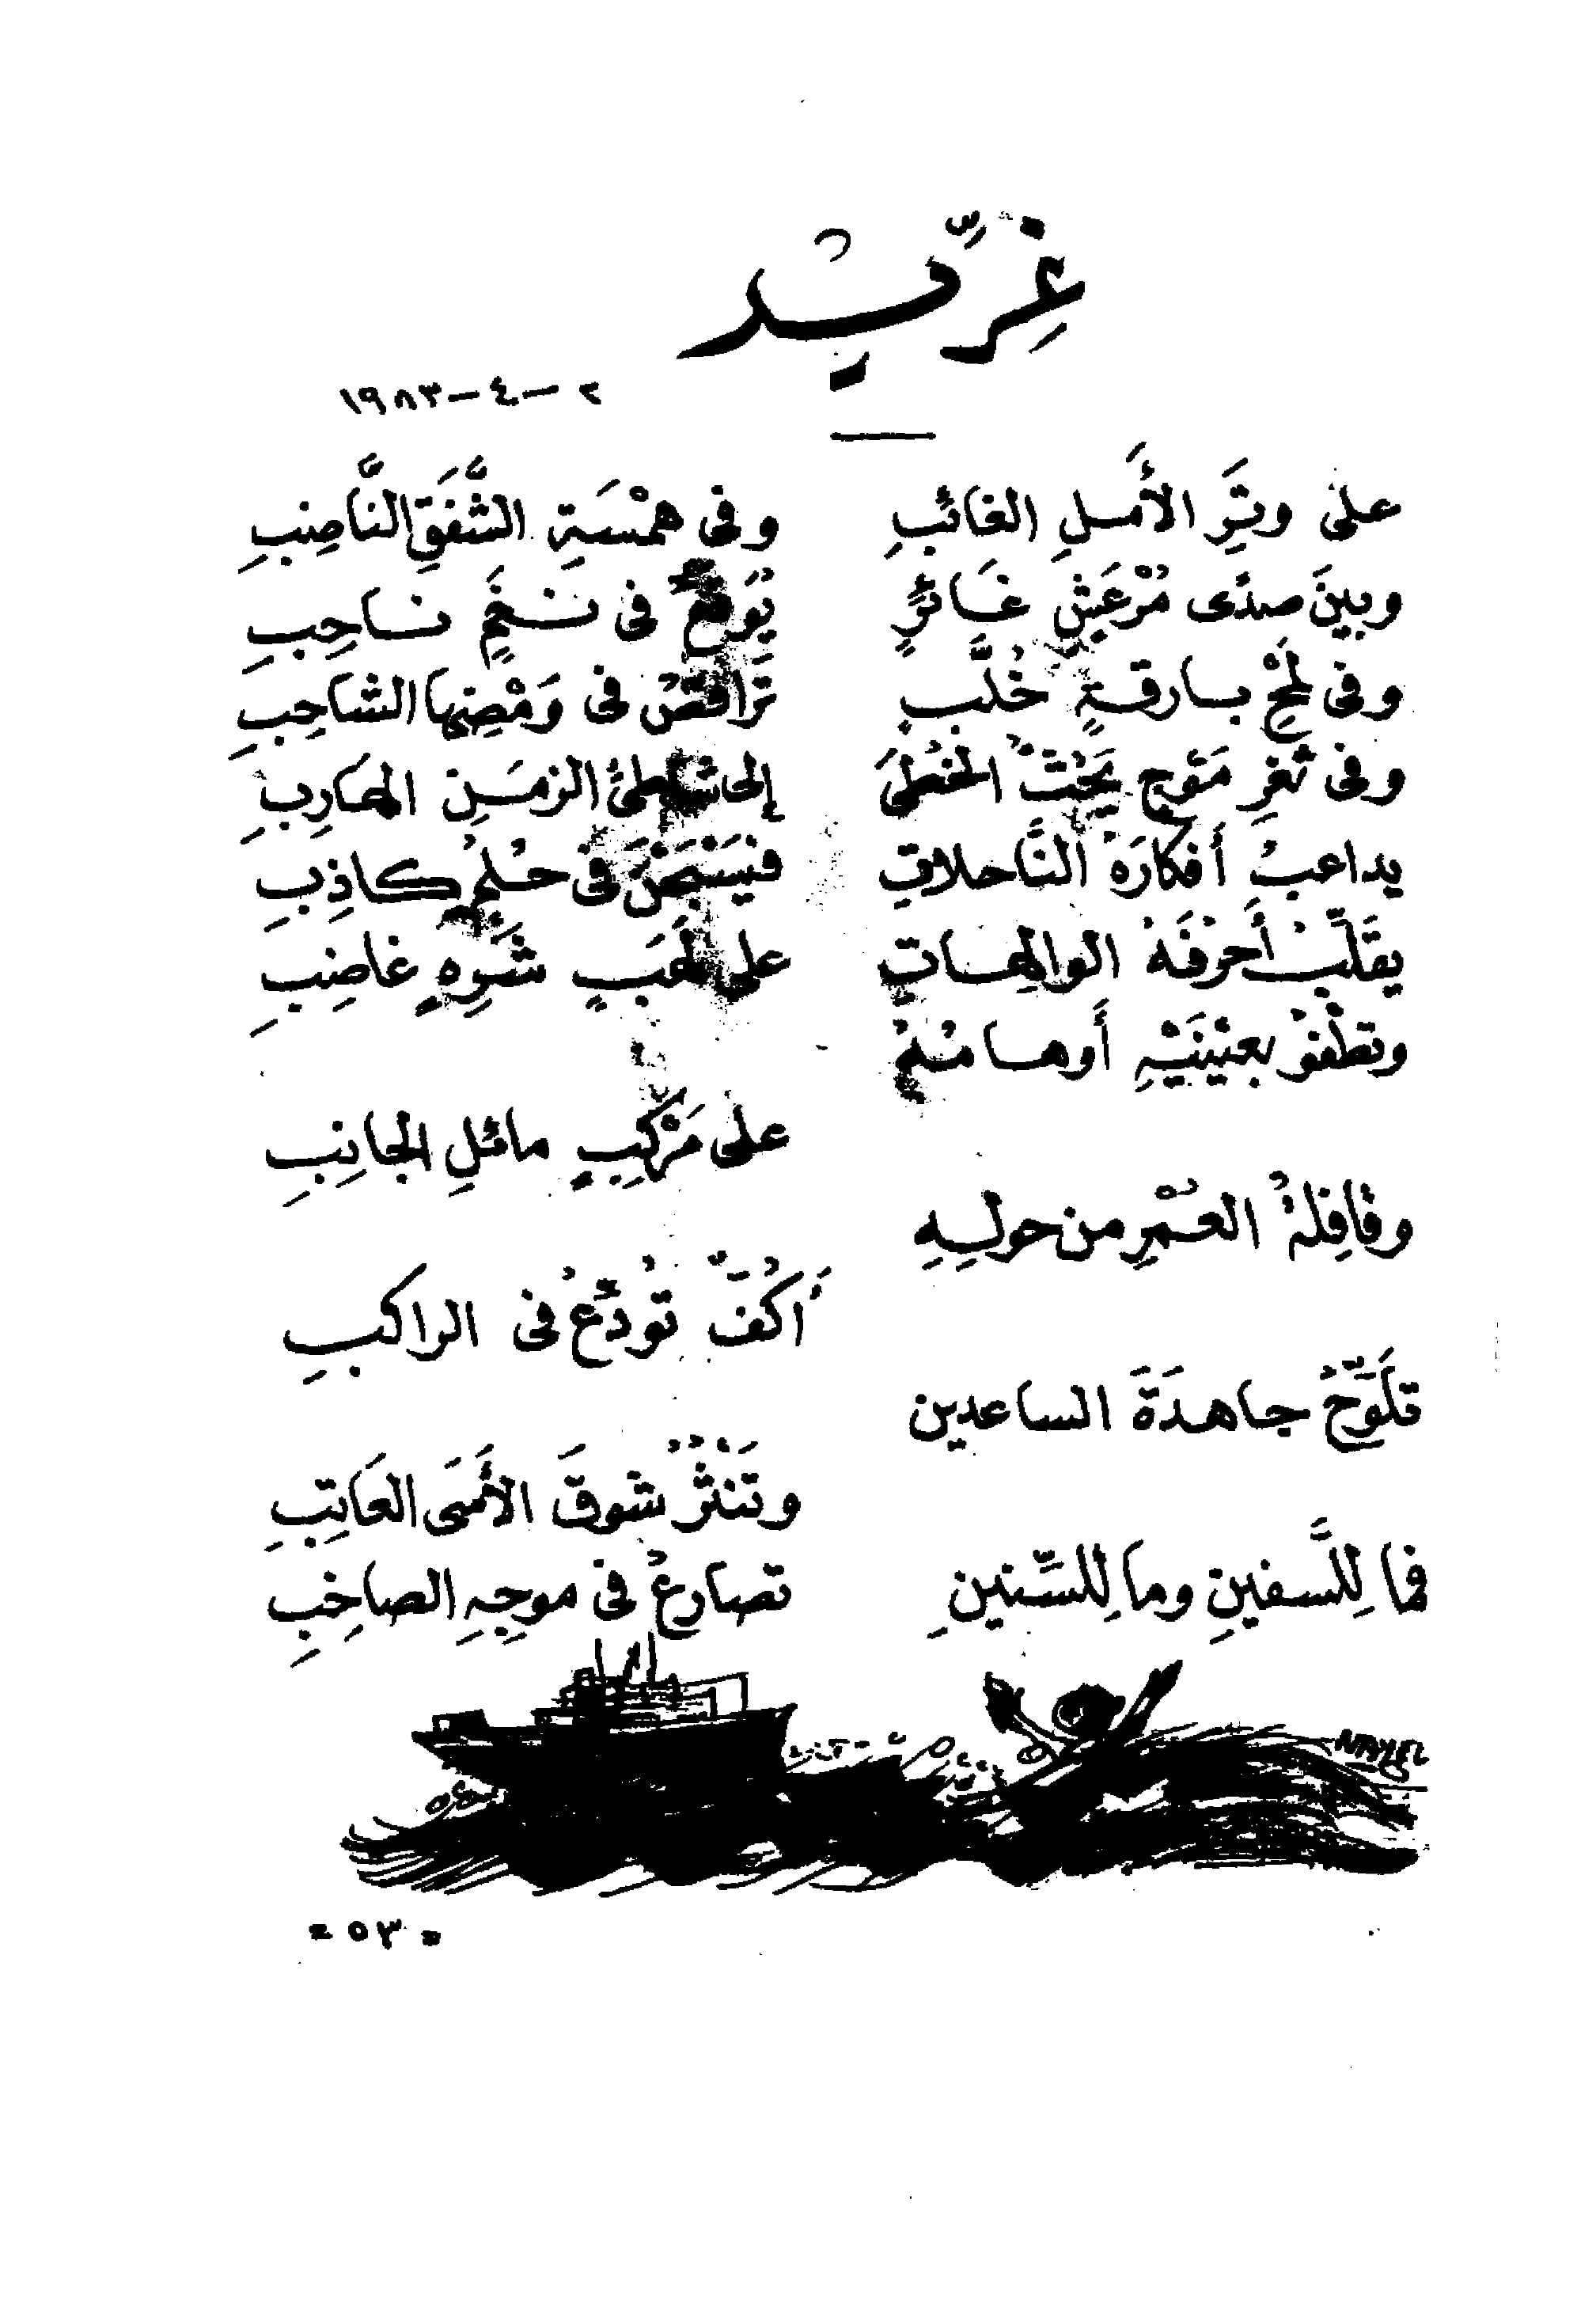 غِرِّيد
٢-٤-١٩٨٣
على وتَرِ الأَملِ الغائبِ وفى همْسَةِ الشَّفَقِ النَّاضِبِ
وبينَ صدًى مُرْعَشٍ غَائرٍ يُوَقَّعُ فى نَغَمٍ ناحِبِ
وفى لَمْحِ بارقةٍ خُلَّبٍ تَراقصُ فى وَمْضِها الشاحِبِ
وفى ثغرِ مَوْجٍ يَحُثُّ الخُطَى إلى شاطئ الزمَنِ الهَارِبِ
يداعبُ أفكارَهُ النَّاحلاتِ فيَسْبَحْنَ فى حُلمٍ كاذِبِ
يقَلِّبُ أَحرُفَهُ الوالِهاتِ على لَهَبٍ شَرِهٍ غاضِبِ
وتطْفو بعيْنَيْهِ أَوهامُهُ
على مَرْكَبٍ مائلِ الجانِبِ
وقافِلةُ العُمْرِ من حولِهِ
أَكُفٌّ تُودِّعُ فى الراكبِ
تلَوِّحُ جاهدَةَ الساعدين
وتَنْثُرُ شوقَ الأَسَى العَاتِبِ
فما لِلسَّفينِ وما لِلسِّنينِ تصارعُ فى موجِهِ الصاخِبِ
NAYEL
- ٥٣ -